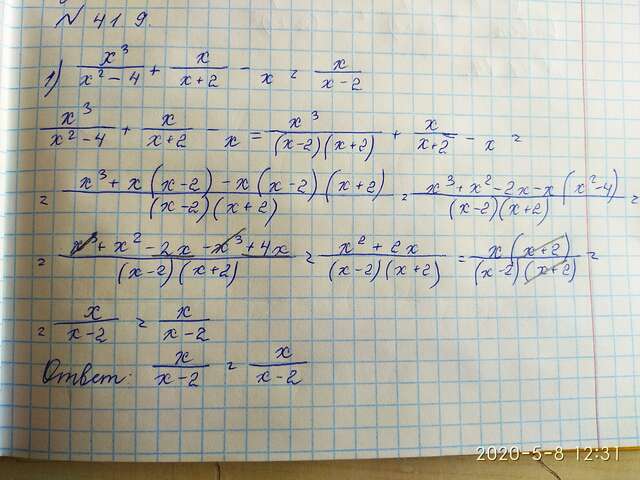 № 419.
1) x³/(x² - 4) + x/(x+2) - x = x/(x-2)
x³/(x² - 4) + x/(x+2) - x = x³/((x-2)(x+2)) + x/(x+2) - x =
= (x³ + x(x-2) - x(x-2)(x+2))/((x-2)(x+2)) = (x³ + x² - 2x - x(x² - 4))/((x-2)(x+2)) =
= (x³ + x² - 2x - x³ + 4x)/((x-2)(x+2)) = (x² + 2x)/((x-2)(x+2)) = (x(x+2))/((x-2)(x+2)) =
= x/(x-2) = x/(x-2)
Ответ: x/(x-2) = x/(x-2)
2020-5-8 12:31